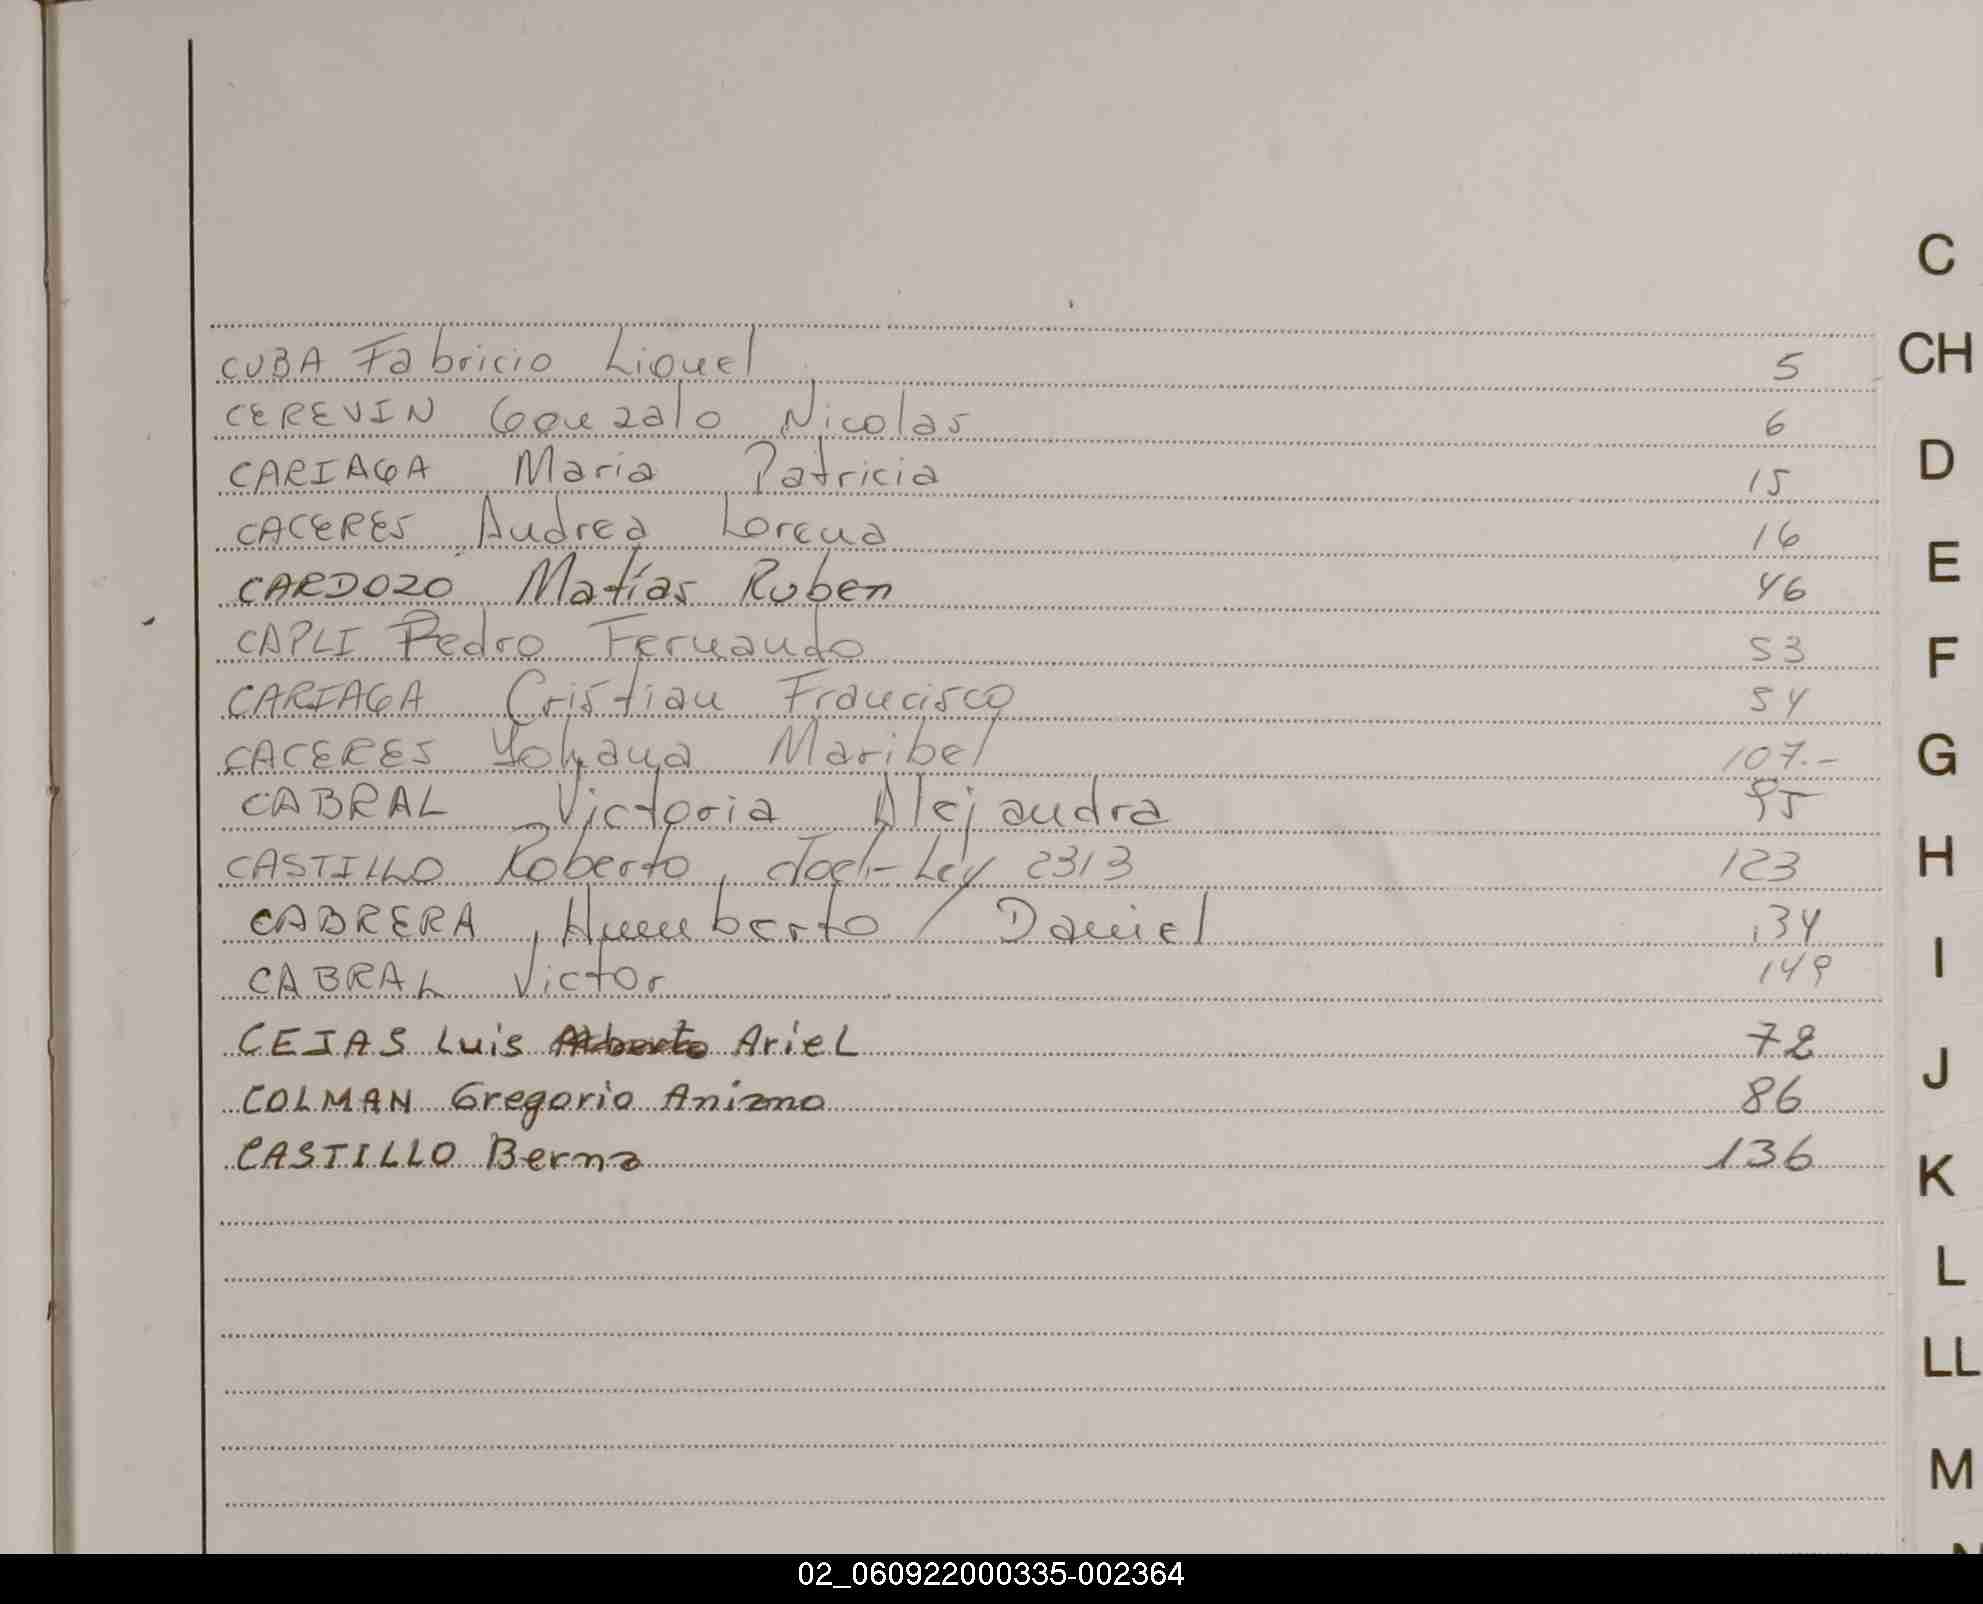 CUBA Fabricio Lionel 5
CEREVIN Gonzalo Nicolas 6
CARIAGA Maria Patricia 15
CACERES Andrea Lorena 16
CARDOZO Matías Ruben 46
CAPLI Pedro Fernando 53
CARIAGA Cristian Francisco 54
CACERES Yohana Maribel 107.-
CABRAL Victoria Alejandra 95
CASTILLO Roberto, Joel- Ley 2313 123
CABRERA, Humberto / Daniel 134
CABRAL Victor 149
CEJAS Luis Alberto Ariel 72
COLMAN Gregorio 86
CASTILLO Berna 136
C
CH
D
E
F
G
H
I
J
K
L
LL
M
02_060922000335-002364